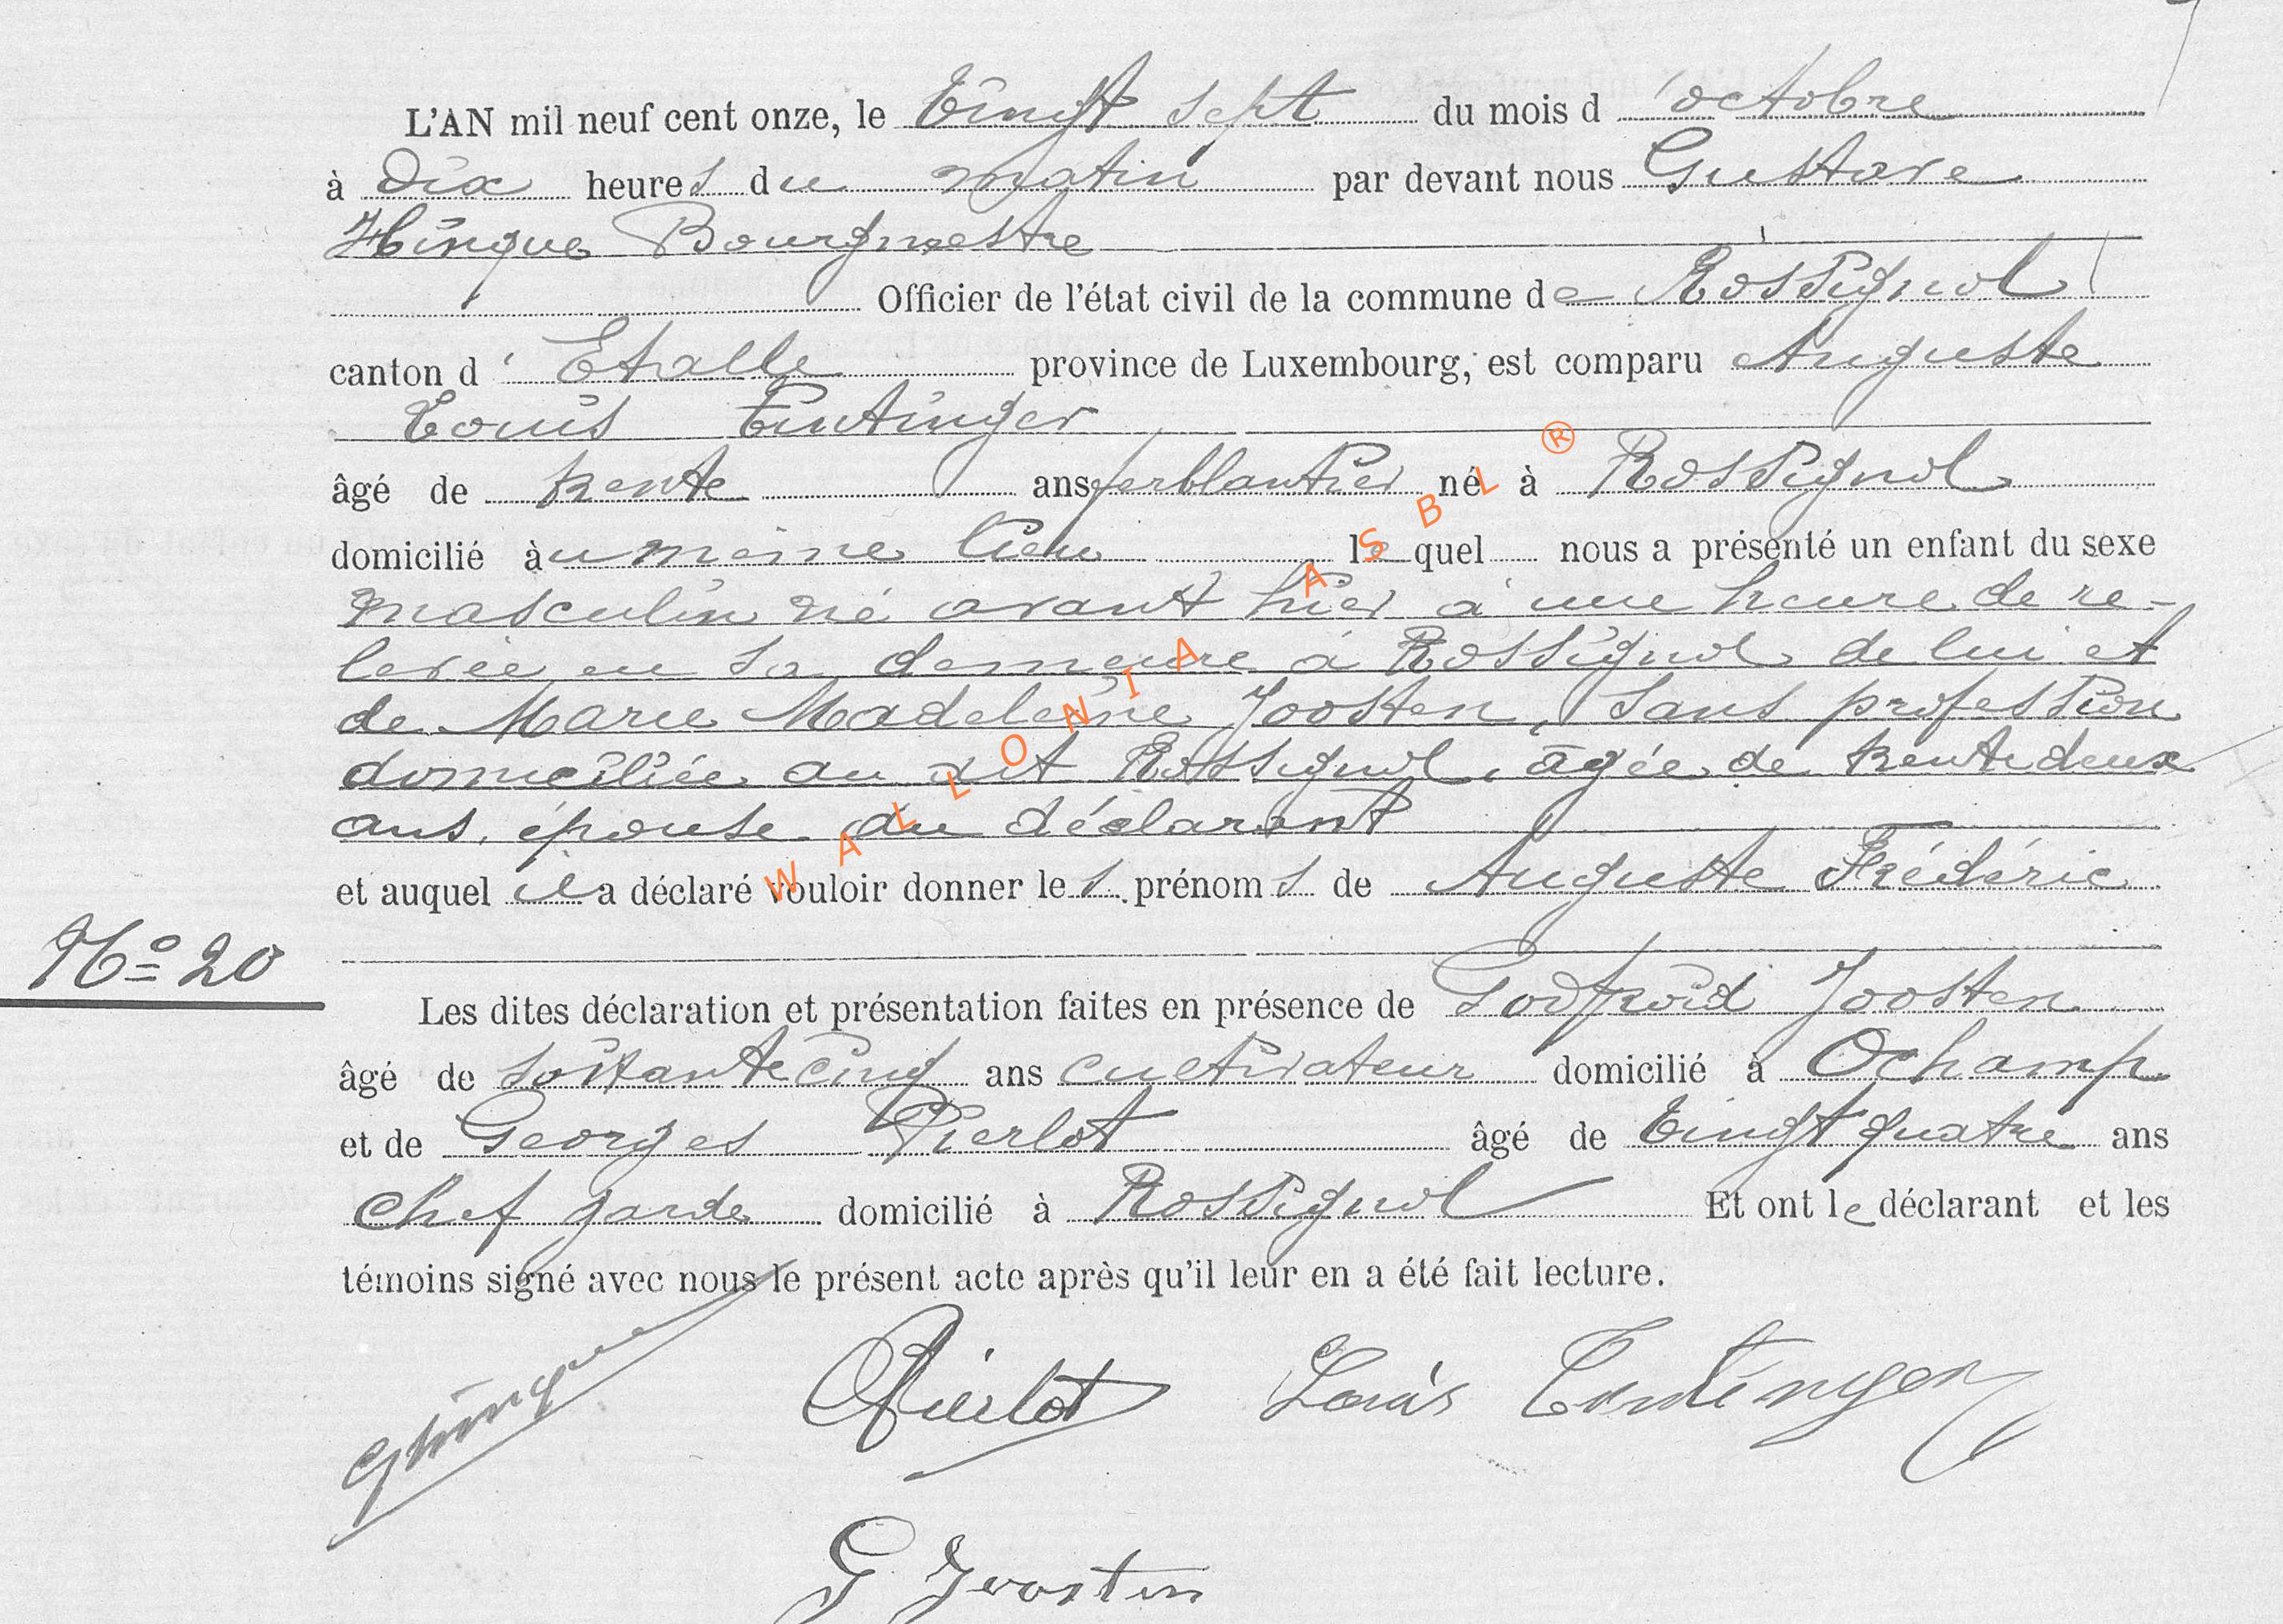 L'AN mil neuf cent onze, le Vingt sept du mois d'octobre
à Dix heures du matin par devant nous Gustave
Hinque Bourgmestre
Officier de l'état civil de la commune de Rossignol
canton d'Etalle province de Luxembourg, est comparu Auguste
Louis Tintinger
âgé de trente ans ferblantier né à Rossignol
domicilié au meme lieu lequel nous a présenté un enfant du sexe
masculin né avant hier à une heure de re-
levée en sa demeure à Rossignol de lui et
de Marie Madeleine Joosten, sans profession
domiciliée au dit Rossignol, âgée de trente deux
ans, épouse du déclarant
et auquel il a déclaré vouloir donner les prénoms de Auguste Frédéric
No 20
Les dites déclaration et présentation faites en présence de Godfroid Joosten
âgé de soixante cinq ans cultivateur domicilié à Ochamp
et de Georges Pierlot âgé de Vingt quatre ans
chef garde domicilié à Rossignol Et ont le déclarant et les
témoins signé avec nous le présent acte après qu'il leur en a été fait lecture.
GHinque Pierlot Louis Tintinger
G Joosten
WALLONIA ASBL ®